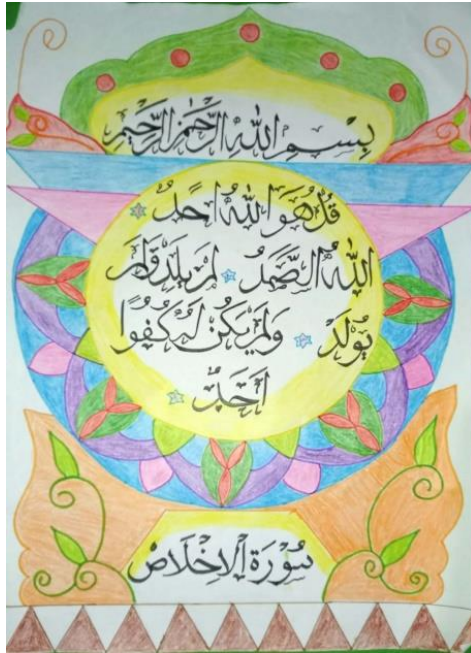 بِسْمِ اللهِ الرَّحْمٰنِ الرَّحِيْمِ
قُلْ هُوَ اللهُ اَحَدٌ
اللهُ الصَّمَدُ لَمْ يَلِدْ وَلَمْ
يُوْلَدْ وَلَمْ يَكُنْ لَهُ كُفُوًا
اَحَدٌ
سُوْرَةُ الْاِخْلَاصِ